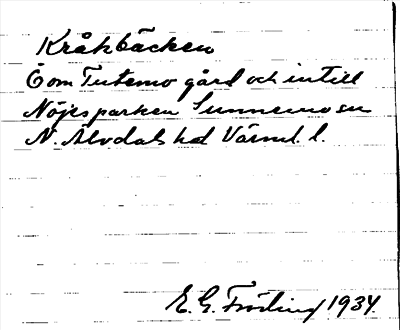 Kråkbäcken
Ö om Tutemo gård och intill
Nöjesparken Sunnemo sn
N. Älvdals hd Värml. l.
E. G. Fröding 1934.